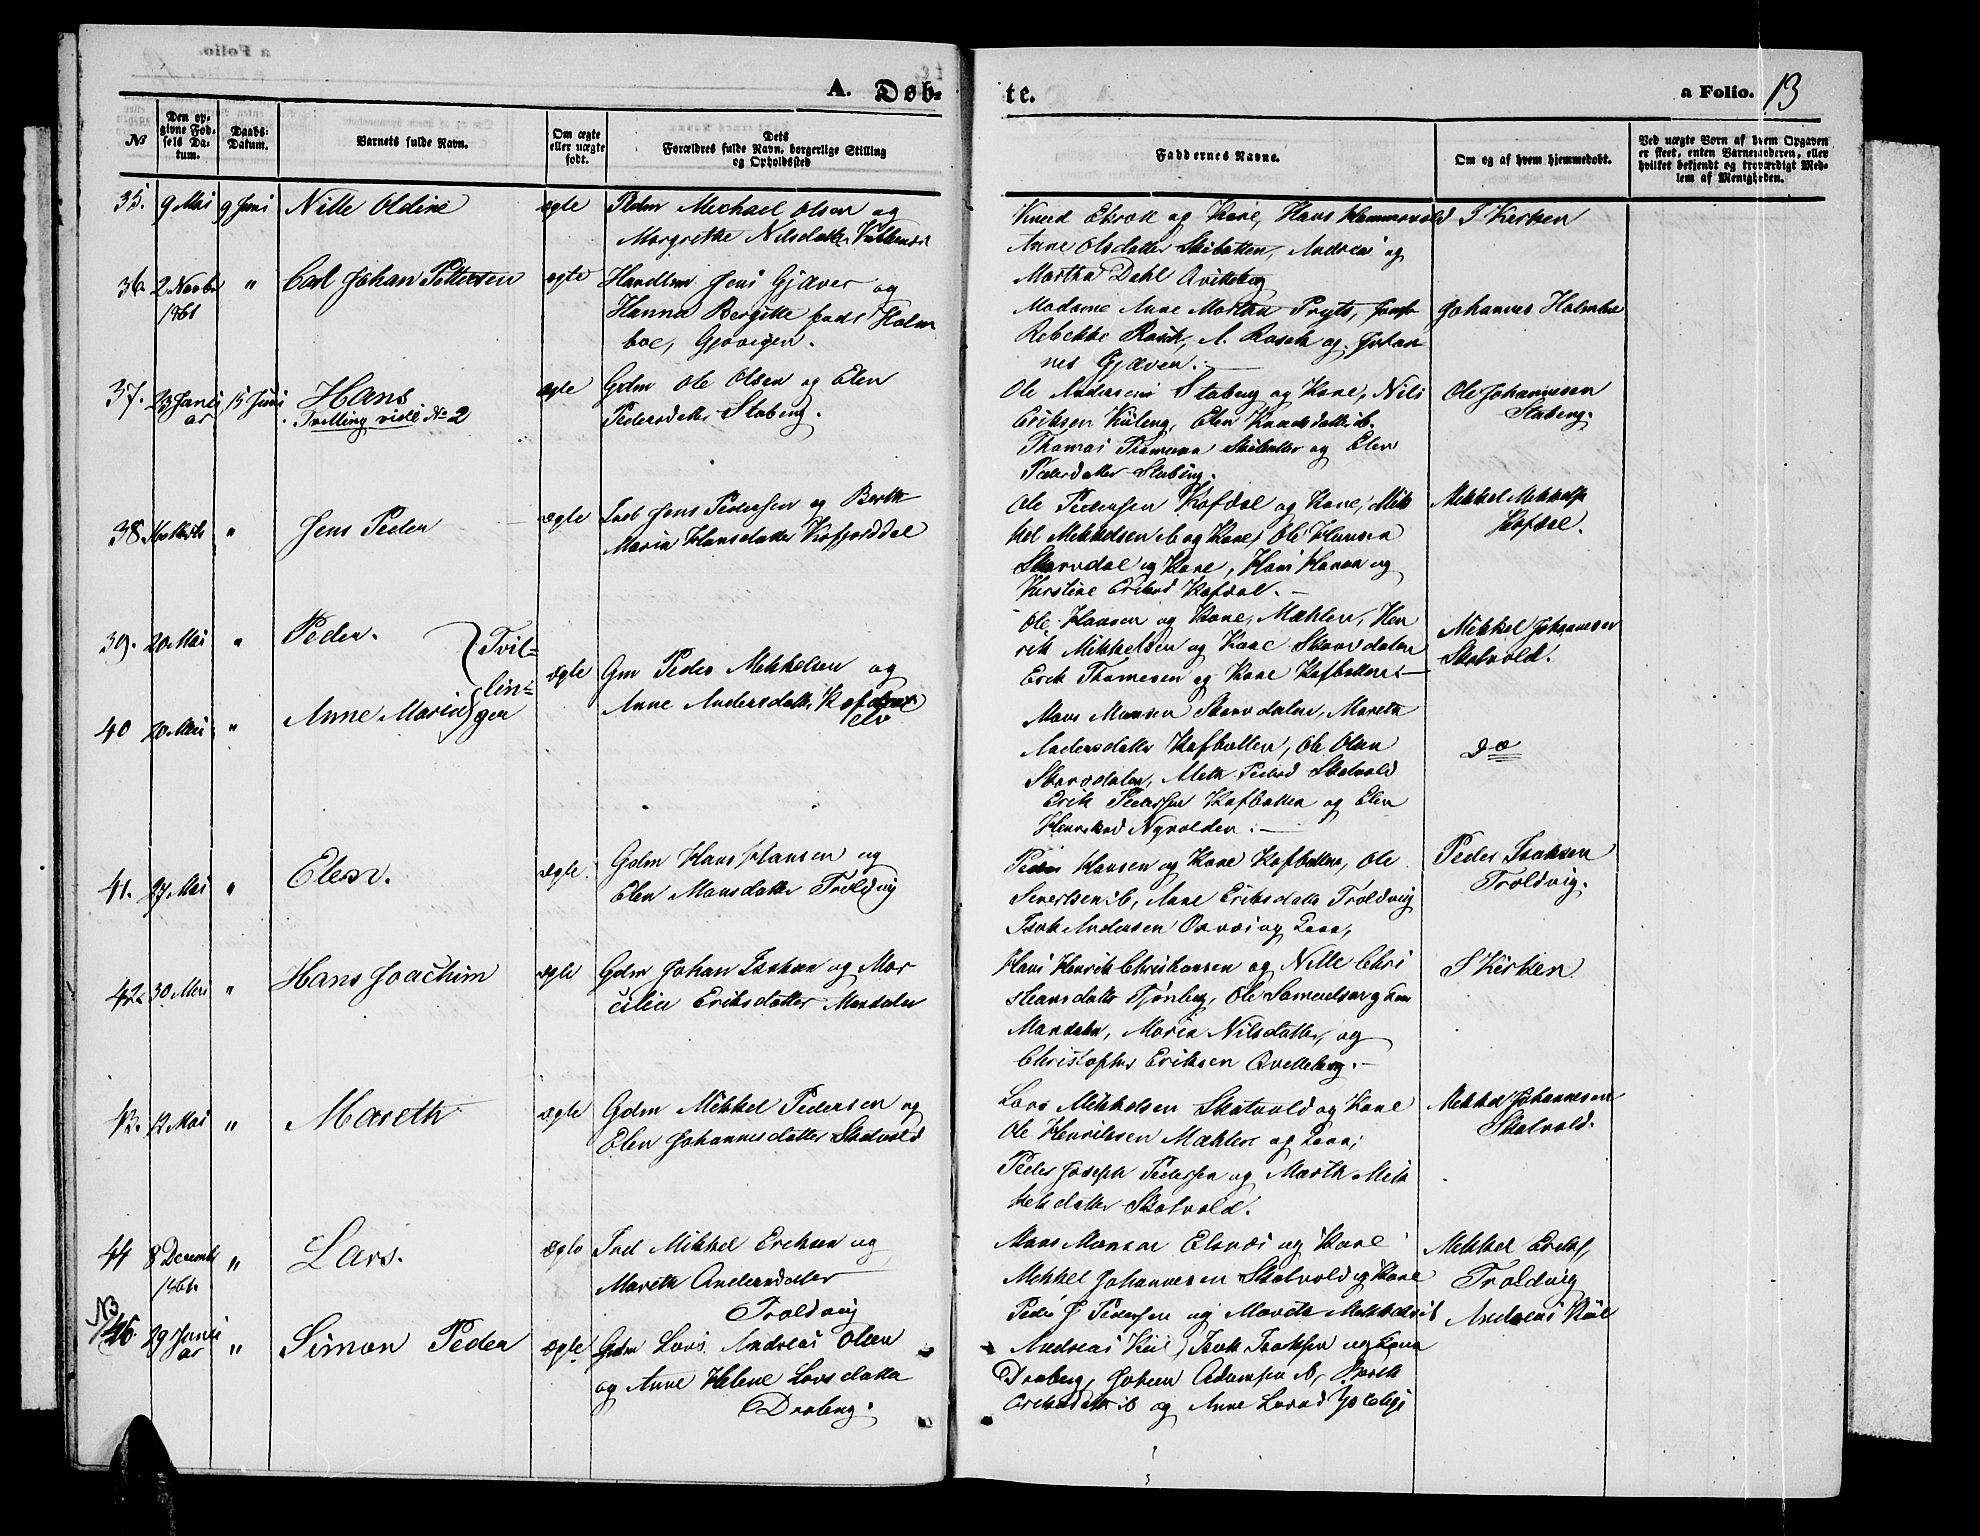 A. Døb-
te.
a Folio. 13
№
Den op-
givne Fød-
sels Da-
tum.
Daabs-
Datum.
Barnets fulde Navn.
Om ægte
eller uægte
født.
Dets
Forældres fulde Navn, borgerlige Stilling
og Opholdssted
Faddernes Navne.
Om og af hvem hjemmedøbt.
Ved uægte Børn af hvem Opgaven
er skeet, enten Barnemoderen, eller
hvilket bekjendt og troværdigt Med-
lem af Menigheden.
35. 9 Mai 9 Juni Nille Oldine ægte Pldm Michael Olsen og
Margrethe Nilsdatter
Knud og Kone, Hans I Kirken
Anne Olsdatter Skibotten, Andreas og
Martha Dahl Qvitteberg
36. 2 Novbr
1861 " Carl Johan Pettersen ægte Handlsm Jens Gjæver og
Hanna Bergitte født Holm
boe, Gjøvigen.
Madame Anne Martha Pryts, Johannes Holmboe
Rebekke Rasch, A. Rasch og Johan
nes Gjæver.
37. 23 Janu
ar 15 Juni Hans
Tvilling vide № 2 ægte Gdm Ole Olsen og Elen
Pedersdatter Staberg.
Ole Andersen Staberg og Kone, Nils
Eriksen Kileng, Elen Knudsdatter ib.
Thomas Skibotten og Elen
Pedersdatter Staberg.
Ole Johannesen
Staberg.
38 " Jens Peder ægte Ind Jens Pedersen og Berth
Maria Hansdatter Kofjorddal
Ole Pedersen Kofdal og Kone, Mik
kel Mikkelsen ib og Kone, Ole Hansen
Skarvdal og Kone, Hans Hansen og
Kirstine Kofdal.
Mikkel Mikkels
Kofdal.
39. 20 Mai " Peder. Tvil-
lin-
ger
ægte Gm Peder Mikkelsen og
Anne Andersdatter
elv
Ole Hansen og Kone, Mæhlen, Hen
rik Mikkelsen og Kone Skarvdalen
Erik Thomesen og Kone Kofbotten
Mikkel Johannesen
Skatvold.
40 20 Mai " Anne Maria
Mons Monsen Skarvdalen, Mareth
Andersdatter Kofbotten, Ole Olsen
Skarvdalen, Meth Pedersd Skatvold
Erik Pedersen Kofbotten og Elen
Henriksd Nyvolden.
do
41. 27 Mai " Elen. ægte Gdm Hans Hansen og
Elen Monsdatter Troldvig
Peder Hansen og Kone Kofbotten, Ole
Sivertsen ib, Anne Eriksdatter Troldvig
Isak Andersen og Kone,
Peder Isaksen
Troldvig.
42. 30 Mai " Hans Joachim ægte Gdm Johan Isaksen og Mar
cilia Eriksdatter Mandalen
Hans Henrik Christiansen og Nille Chri
stiansdatter Tjønberg, Ole Samuelsen og Kone
Mandalen, Maria Nilsdatter, og
Christopher Eriksen Qvitteberg.
I Kirken
43. 12 Mai " Mareth ægte Gdm Mikkel Pedersen og
Elen Johannesdatter Skatvold
Lars Mikkelsen Skatvold og Kone
Ole Henriksen Mæhlen og Kone,
Peder Joseph Pedersen og Marth Mik
kelsdatter Skatvold.
Mikkel Johannesen
Skatvold.
44 8 Decemb
1861 " Lars. ægte Ind Mikkel Eriksen og
Mareth Andersdatter
Troldvig
Mons Monsen Elsnæs og Kone
Mikkel Johannesen Skatvold og Kone
Peder J Pedersen og Mareth Mikkelsd
Mikkel Eriks
Troldvig
NB
45. 29 Janu
ar " Simon Peder ægte Gdm Lars Andreas Olsen
og Anne Helene Larsdatter
Draberg.
Andreas Kiil, Isak Isaksen og Kone
Draberg, Johan Adamsen ib, Berth
ib og Anne Larsd
Andreas Kiil